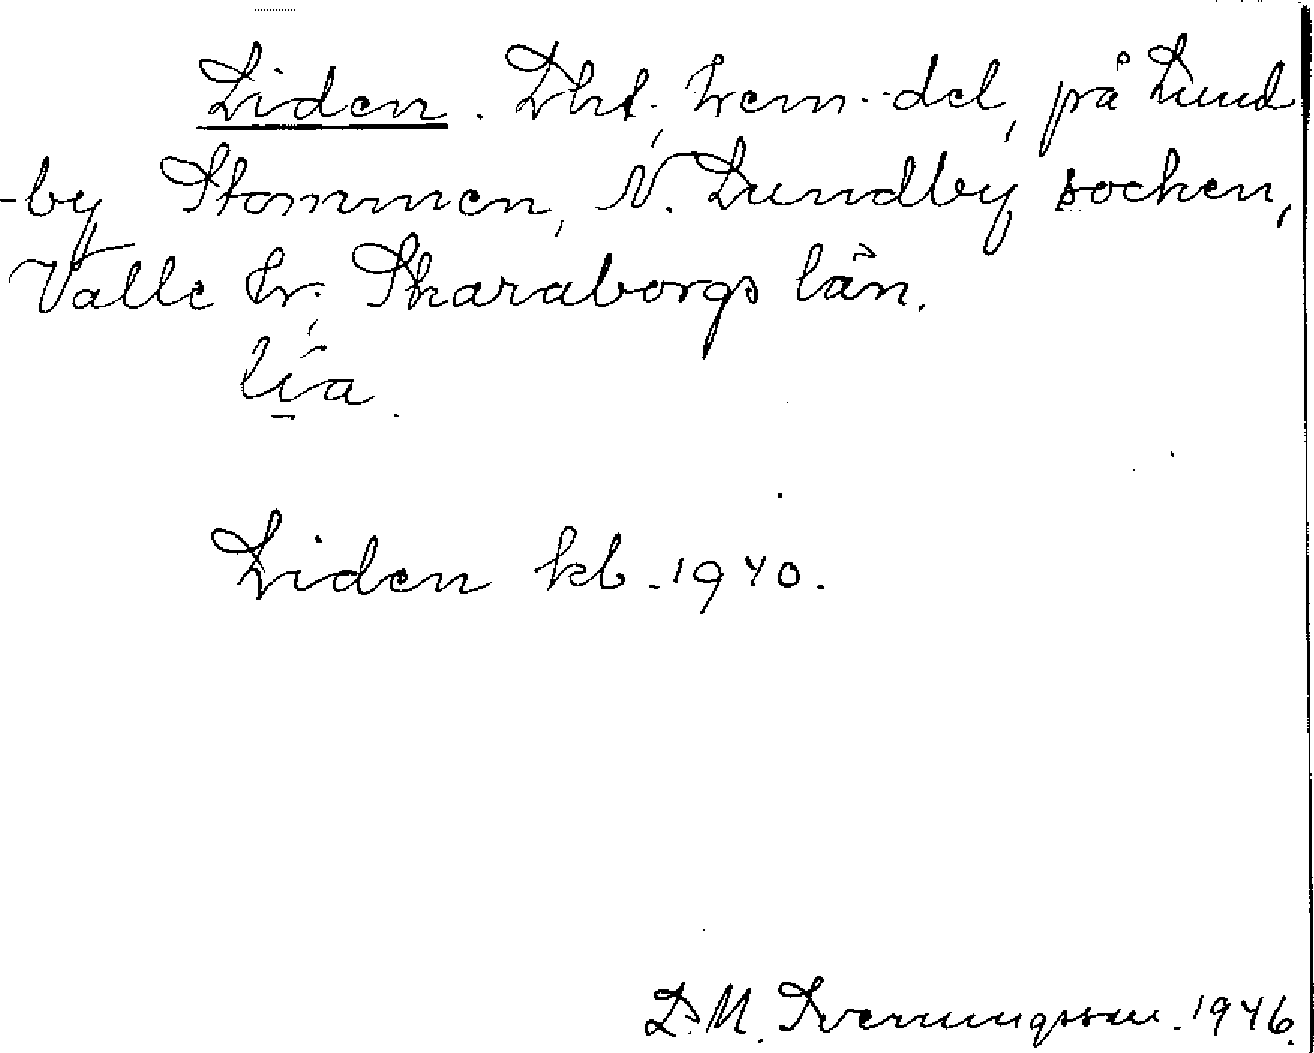 Liden. Lht, hem.-del, på Lund
-by Stommen, N. Lundby socken,
Valle hr; Skaraborgs län.
lía.
Liden kb. 1940.
D. M. Svenungsson. 1946.